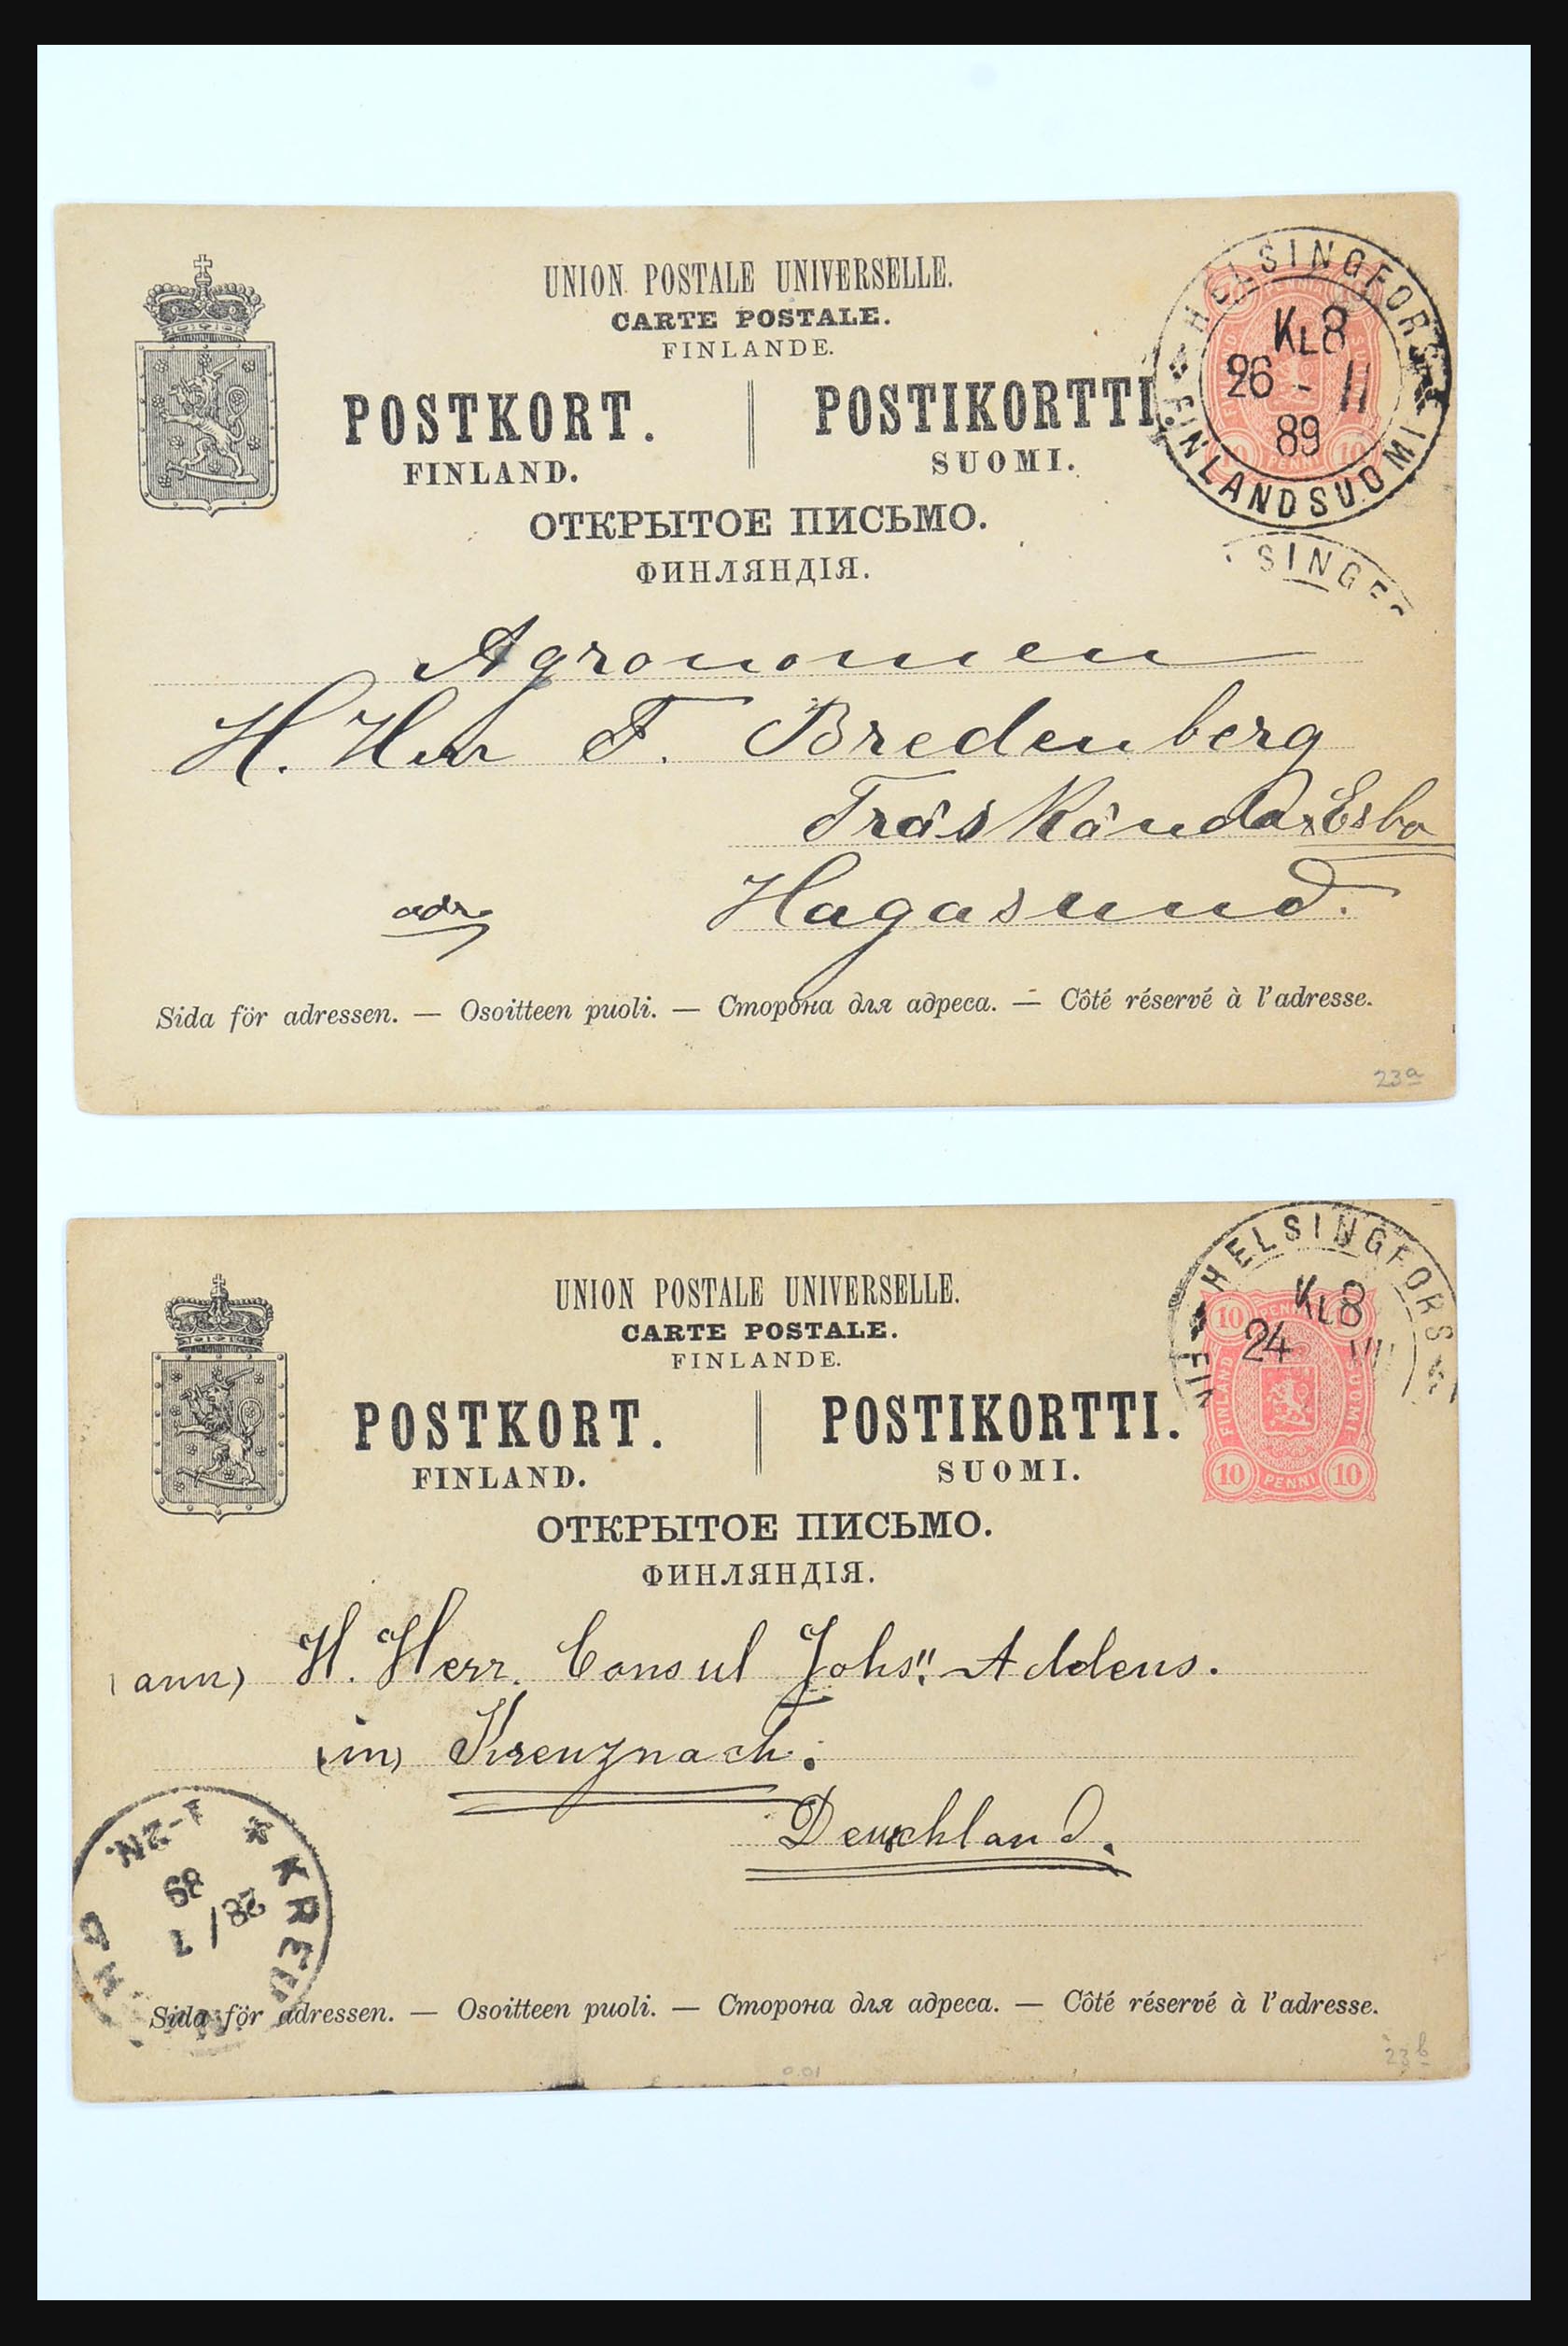 UNION POSTALE UNIVERSELLE.
CARTE POSTALE.
FINLANDE.
POSTKORT. POSTIKORTTI.
FINLAND. SUOMI.
ОТКРЫТОЕ ПИСЬМО.
ФИНЛЯНДІЯ.
HELSINGFORS
KL8
26 - II
89
FINLAND SUOMI
SINGF
Agronomen
H. Herr F. Bredenberg
Träskända, Esbo
Hagasund.
adr
Sida för adressen. — Osoitteen puoli. — Сторона для адреса. — Côté réservé à l'adresse.
23a
UNION POSTALE UNIVERSELLE.
CARTE POSTALE.
FINLANDE.
POSTKORT. POSTIKORTTI.
FINLAND. SUOMI.
ОТКРЫТОЕ ПИСЬМО.
ФИНЛЯНДІЯ.
HELSINGFORS
KL8
24
FIN
10 PENNI 10
FINLAND SUOMI
10 PENNI 10
(ann) H. Herr. Consul Johs" Addens.
(in) Kreuznach.
Deuschland.
KREU
1-2N.
89
28/7
Sida för adressen. — Osoitteen puoli. — Сторона для адреса. — Côté réservé à l'adresse.
0.01
23b